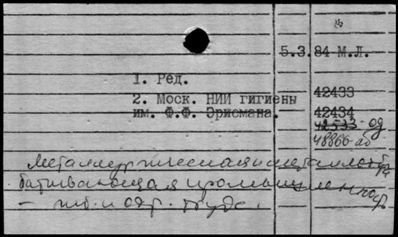 5.3.84 М.Л.
1. Ред.
2. Моск. НИИ гигиены
им. Ф.Ф. Эрисмана.
42433
42434
42533-од
48866-аб
Металлургическая и металлооб-
батывающая промышленность
- гиг. и охр. труда.